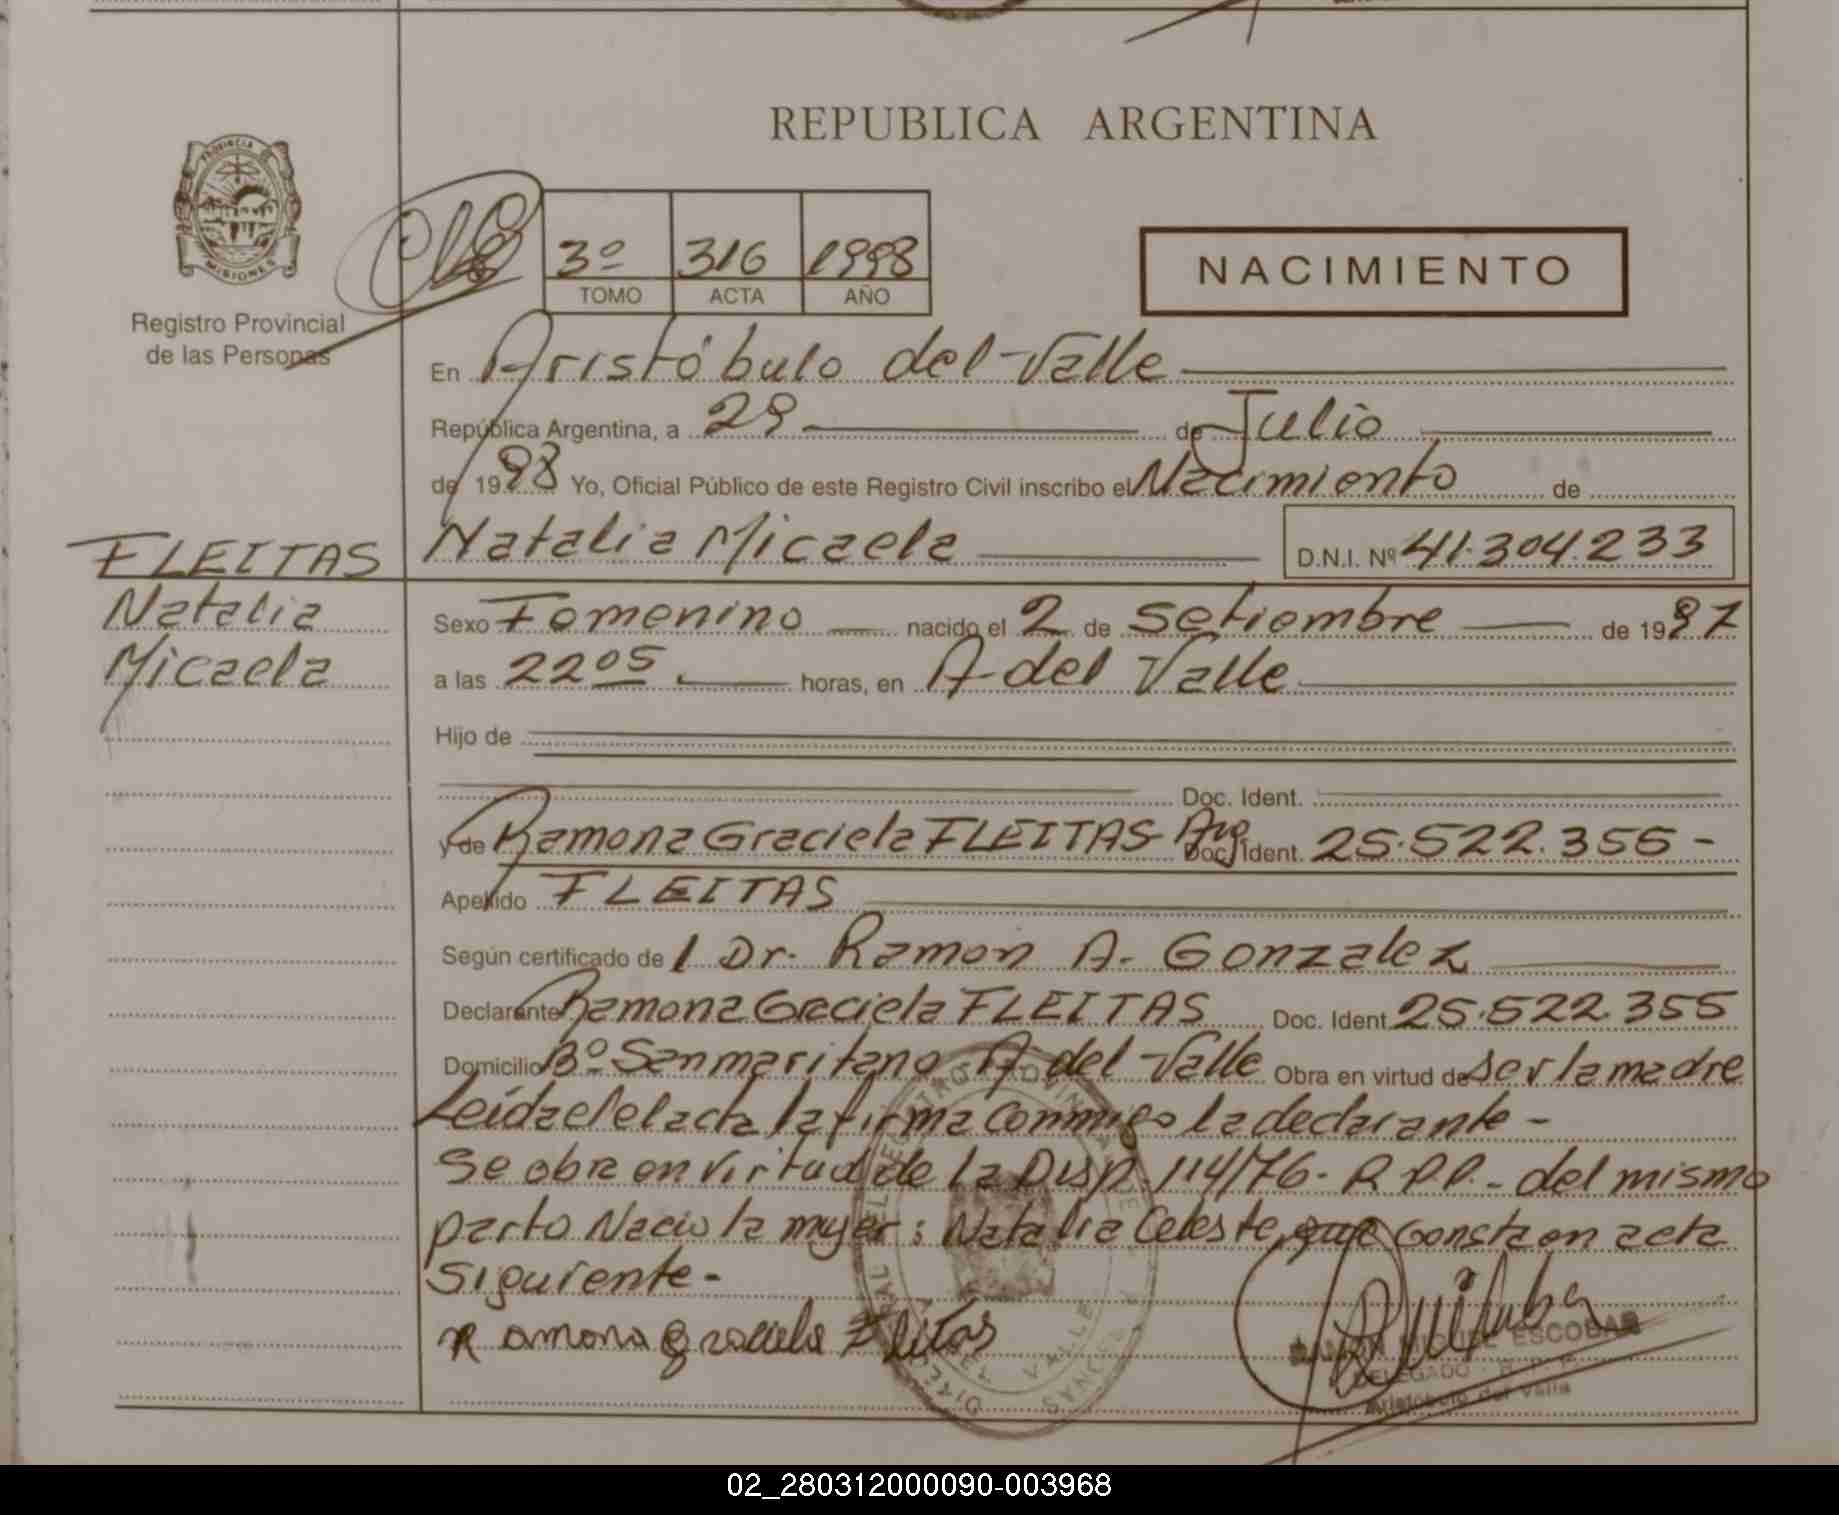 REPUBLICA ARGENTINA
PROVINCIA
MISIONES
Registro Provincial
de las Personas
3º 316 1998
TOMO ACTA AÑO
NACIMIENTO
En Aristóbulo del Valle
República Argentina, a 29 de Julio
de 1998 Yo, Oficial Público de este Registro Civil inscribo el Nacimiento de
Natalia Micaela D.N.I. Nº 41.304.233
FLEITAS
Natalia
Micaela
Sexo Femenino nacido el 2 de Setiembre de 1997
a las 22 05 horas, en A del Valle
Hijo de
Doc. Ident.
y de Ramona Graciela FLEITAS Arg Doc. Ident. 25.522.355 -
Apellido FLEITAS
Según certificado de l Dr. Ramon A. Gonzalez
Declarante Ramona Graciela FLEITAS Doc. Ident 25.522.355
Domicilio Bº Sanmaritano A del Valle Obra en virtud de ser la madre
Leída el acta la firma conmigo la declarante -
Se obra en virtud de la Disp. 114/76 - R.P.P. - del mismo
parto Nacio la mujer: Natalia Celeste, que consta en acta
siguiente -
Ramona graciela Fleitas
RAMON MIGUEL ESCOBAR
DELEGADO R.P.P.
Aristóbulo del Valle
02_280312000090-003968